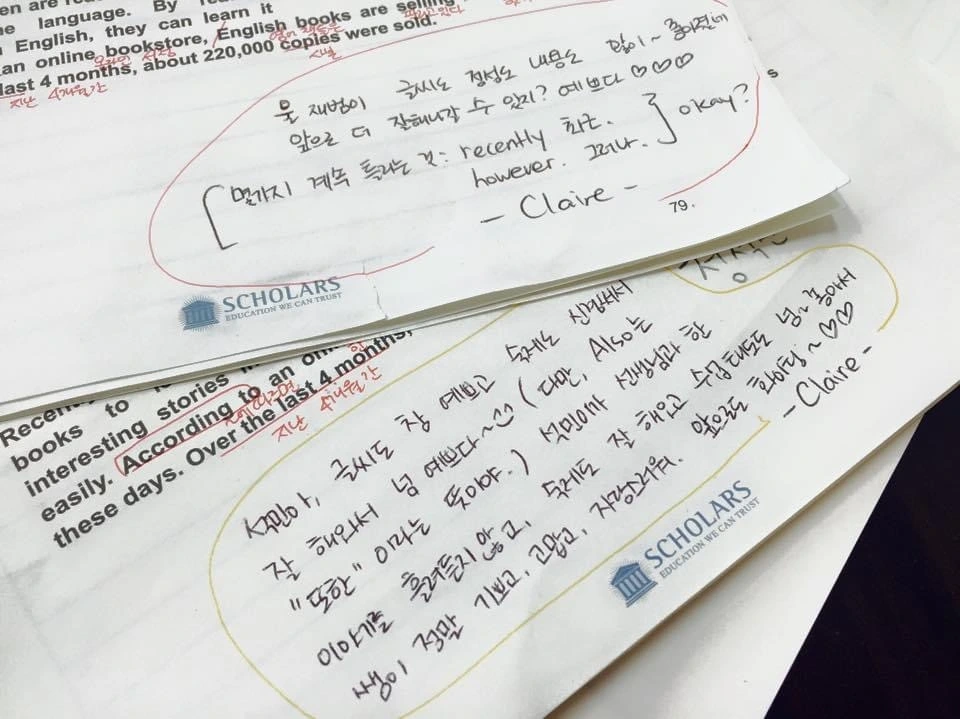 language. By
English, they can learn it
an online bookstore, English books are selling
온라인 서점
팔리고 있다
last 4 months, about 220,000 copies were sold.
지난 4개월간
울 재범이 글씨도 정성도 내용도 많이~ 좋아졌네
앞으로 더 잘해나갈 수 있지? 예쁘다 ♡♡♡
몇가지 계속 틀리는 것: recently 최근.
however. 그러나.
okay?
- Claire -
79.
SCHOLARS
EDUCATION WE CAN TRUST
books to
interesting stories
easily. According to an
these days. Over the last 4 months,
지난 4개월간
석민아, 글씨도 참 예쁘고 숙제도 신경써서
잘 해와서 넘 예쁘다~^^ (다만, Also는
"또한" 이라는 뜻이야.) 석민이가 선생님과 한
이야기를 흘려듣지 않고, 숙제도 잘 해오고 수업태도도 넘~ 좋아서
쌤이 정말 기쁘고, 고맙고, 자랑스러워.
앞으로도 화이팅~♡♡
- Claire -
SCHOLARS
EDUCATION WE CAN TRUST